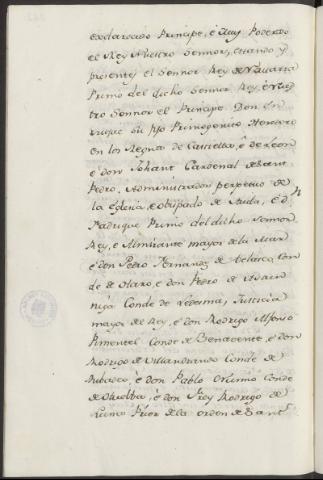 esclarecido Principe, è Muy Poderoso
el Rey Nuestro Sennor, estando y
presentes el Sennor Rey de Navarra
Primo del dicho Sennor Rey, è Nues
tro Sennor el Principe Don En
rrique su fijo Primogenito Heredero
en los Regnos de Castiella, è de Leon
è don Johant Cardenal de Sant
Pedro, Administrador perpetuo de
la Eglesia, è obispado de Avila, è Dn
Fadrique Primo del dicho Sennor
Rey, è Almirante mayor de la Mar
è don Pedro Fernandez de Velasco, Con
de de Haro, è don Pedro de Astun
niga Conde de Ledesma, Justicia
mayor del Rey, è don Rodrigo Alfonso
Pimentel Conde de Benavente, è don
Rodrigo de Villandrando Conde de
Ribadeo, è don Pablo Conde
de è don Frey Rodrigo de
Luna Prior de la orden de Sant